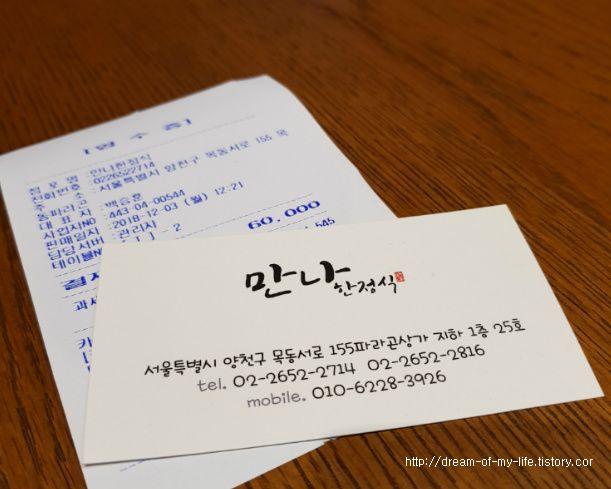 [영 수 증]
점 포 명 : 만나한정식
전화번호 : 0226522714
주 소 : 서울특별시 양천구 목동서로 155 목
동파라곤
대 표 자 : 백승훈
사업자NO : 443-04-00544
판매일자 : 2018-12-03 (월) 12:21
담당서버 : 관리자
테이블N : [ ] - 2
60,000
545
만나
한정식
서울특별시 양천구 목동서로 155파라곤상가 지하 1층 25호
tel. 02-2652-2714 02-2652-2816
mobile. 010-6228-3926
http://dream-of-my-life.tistory.cor